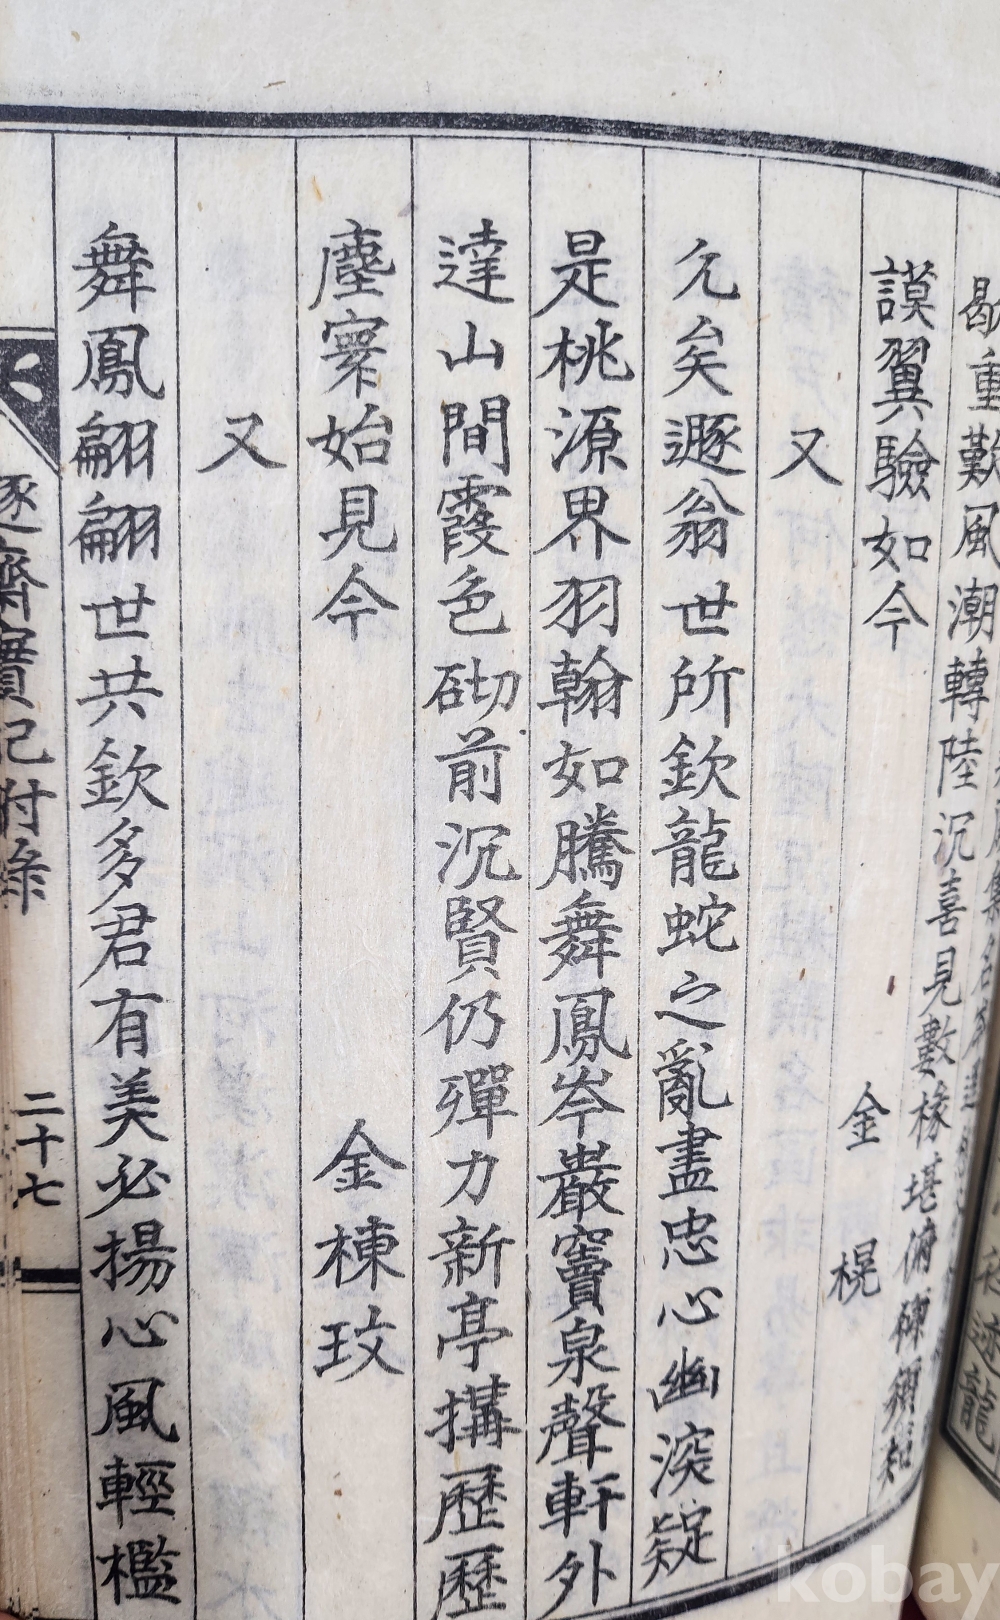 歇重歎風潮轉陸沉喜見數椽堪備碑須知
謨翼驗如今
又 金榥
允矣遯翁世所欽龍蛇之亂盡忠心幽深疑
是桃源界羽翰如騰舞鳳岑巖竇泉聲軒外
達山間霞色砌前沉賢仍殫力新亭搆歷歷
塵寰始見今
又 金棟玟
舞鳳翩翩世共欽多君有美必揚心風輕檻
遯齋實記附錄
二十七
kobay